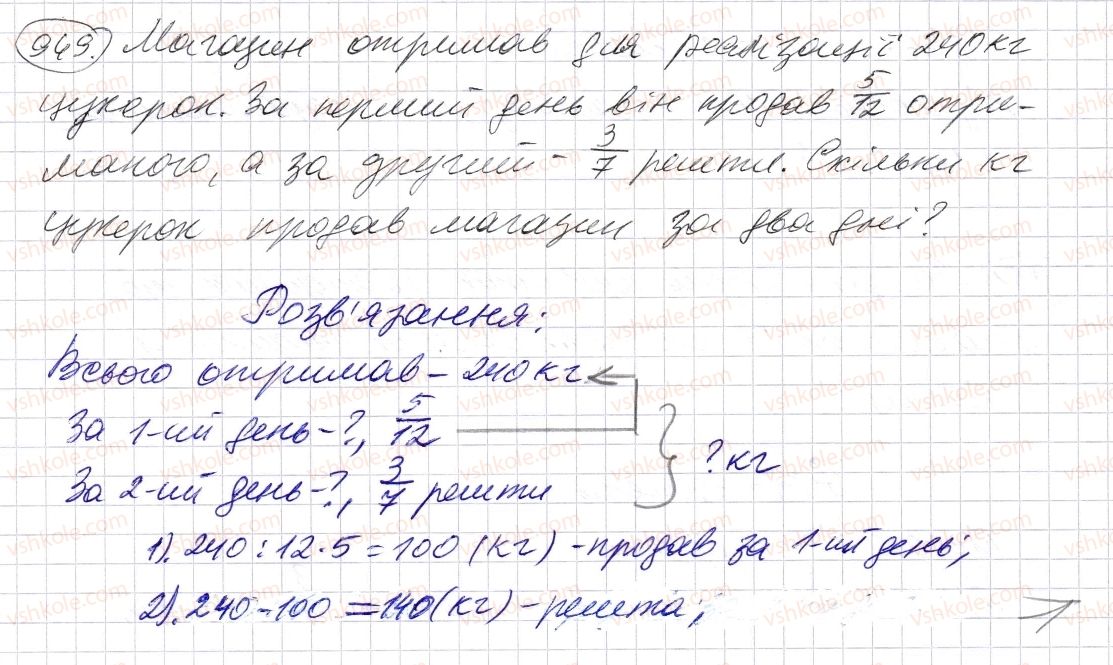 949. Магазин отримав для реалізації 240 кг
цукерок. За перший день він продав 5/12 отри-
маного, а за другий - 3/7 решти. Скільки кг
цукерок продав магазин за два дні?
Розв'язання:
Всього отримав – 240 кг
За 1-ий день - ?, 5/12
За 2-ий день - ?, 3/7 решти
? кг
1). 240 : 12 · 5 = 100 (кг) - продав за 1-ий день;
2). 240 - 100 = 140 (кг) - решта;